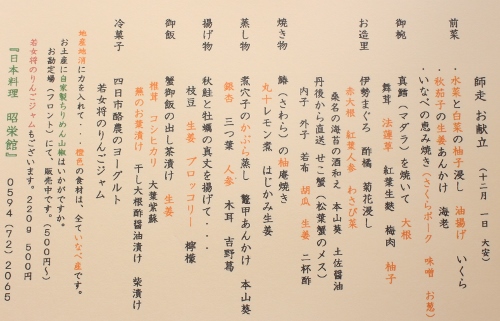 師走 お献立 (十二月 一日 大安)
前菜 ・水菜と白菜の柚子浸し 油揚げ いくら
・秋茄子の生姜あんかけ 海老
・いなべの恵み焼き(さくらポーク 味噌 お葱)
御椀 真鱈(マダラ)を焼いて 大根
舞茸 法蓮草 紅葉生麩 梅肉 柚子
お造里 伊勢まぐろ 酢橘 菊花浸し
赤大根 紅葉人参 わさび菜
桑名の海苔の酒和え 本山葵 土佐醤油
丹後から直送 せこ蟹(松葉蟹のメス)
内子 外子 若布 胡瓜 生姜 二杯酢
焼き物 鰆(さわら)の柚庵焼き
丸十レモン煮 はじかみ生姜
蒸し物 煮穴子のかぶら蒸し 鼈甲あんかけ 本山葵
銀杏 三つ葉 人参 木耳 吉野葛
揚げ物 秋鮭と牡蠣の真丈を揚げて・・・
枝豆 生姜 ブロッコリー 檸檬
御飯 蟹御飯の出し茶漬け 生姜
椎茸 コシヒカリ 大葉紫蘇
蕪のお葉漬け 干し大根酢醤油漬け 柴漬け
冷菓子 四日市酪農のヨーグルト
若女将のりんごジャム
地産地消に力を入れて・・・橙色の食材は、全ていなべ産です。
お土産に自家製ちりめん山椒はいかがですか。
お勘定場(フロント)にて、販売中です。(500円~)
若女将のりんごジャムもございます。220g 500円
『日本料理 昭栄館』 0594(72)2065